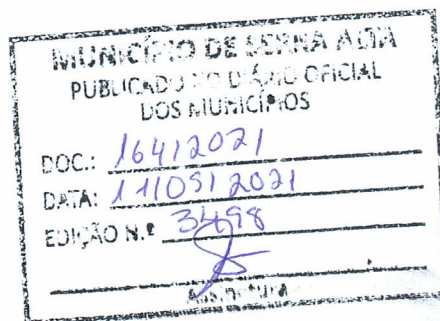 MUNICÍPIO DE SERRA ALTA
PUBLICADO NO DIÁRIO OFICIAL
DOS MUNICÍPIOS
DOC.: 164/2021
DATA: 11/05/2021
EDIÇÃO N.º 3498
Assinatura